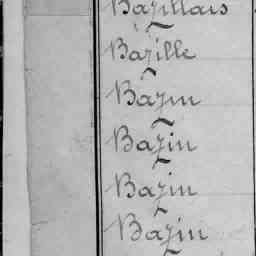 Bazillais
Bazille
Bazin
Bazin
Bazin
Bazin